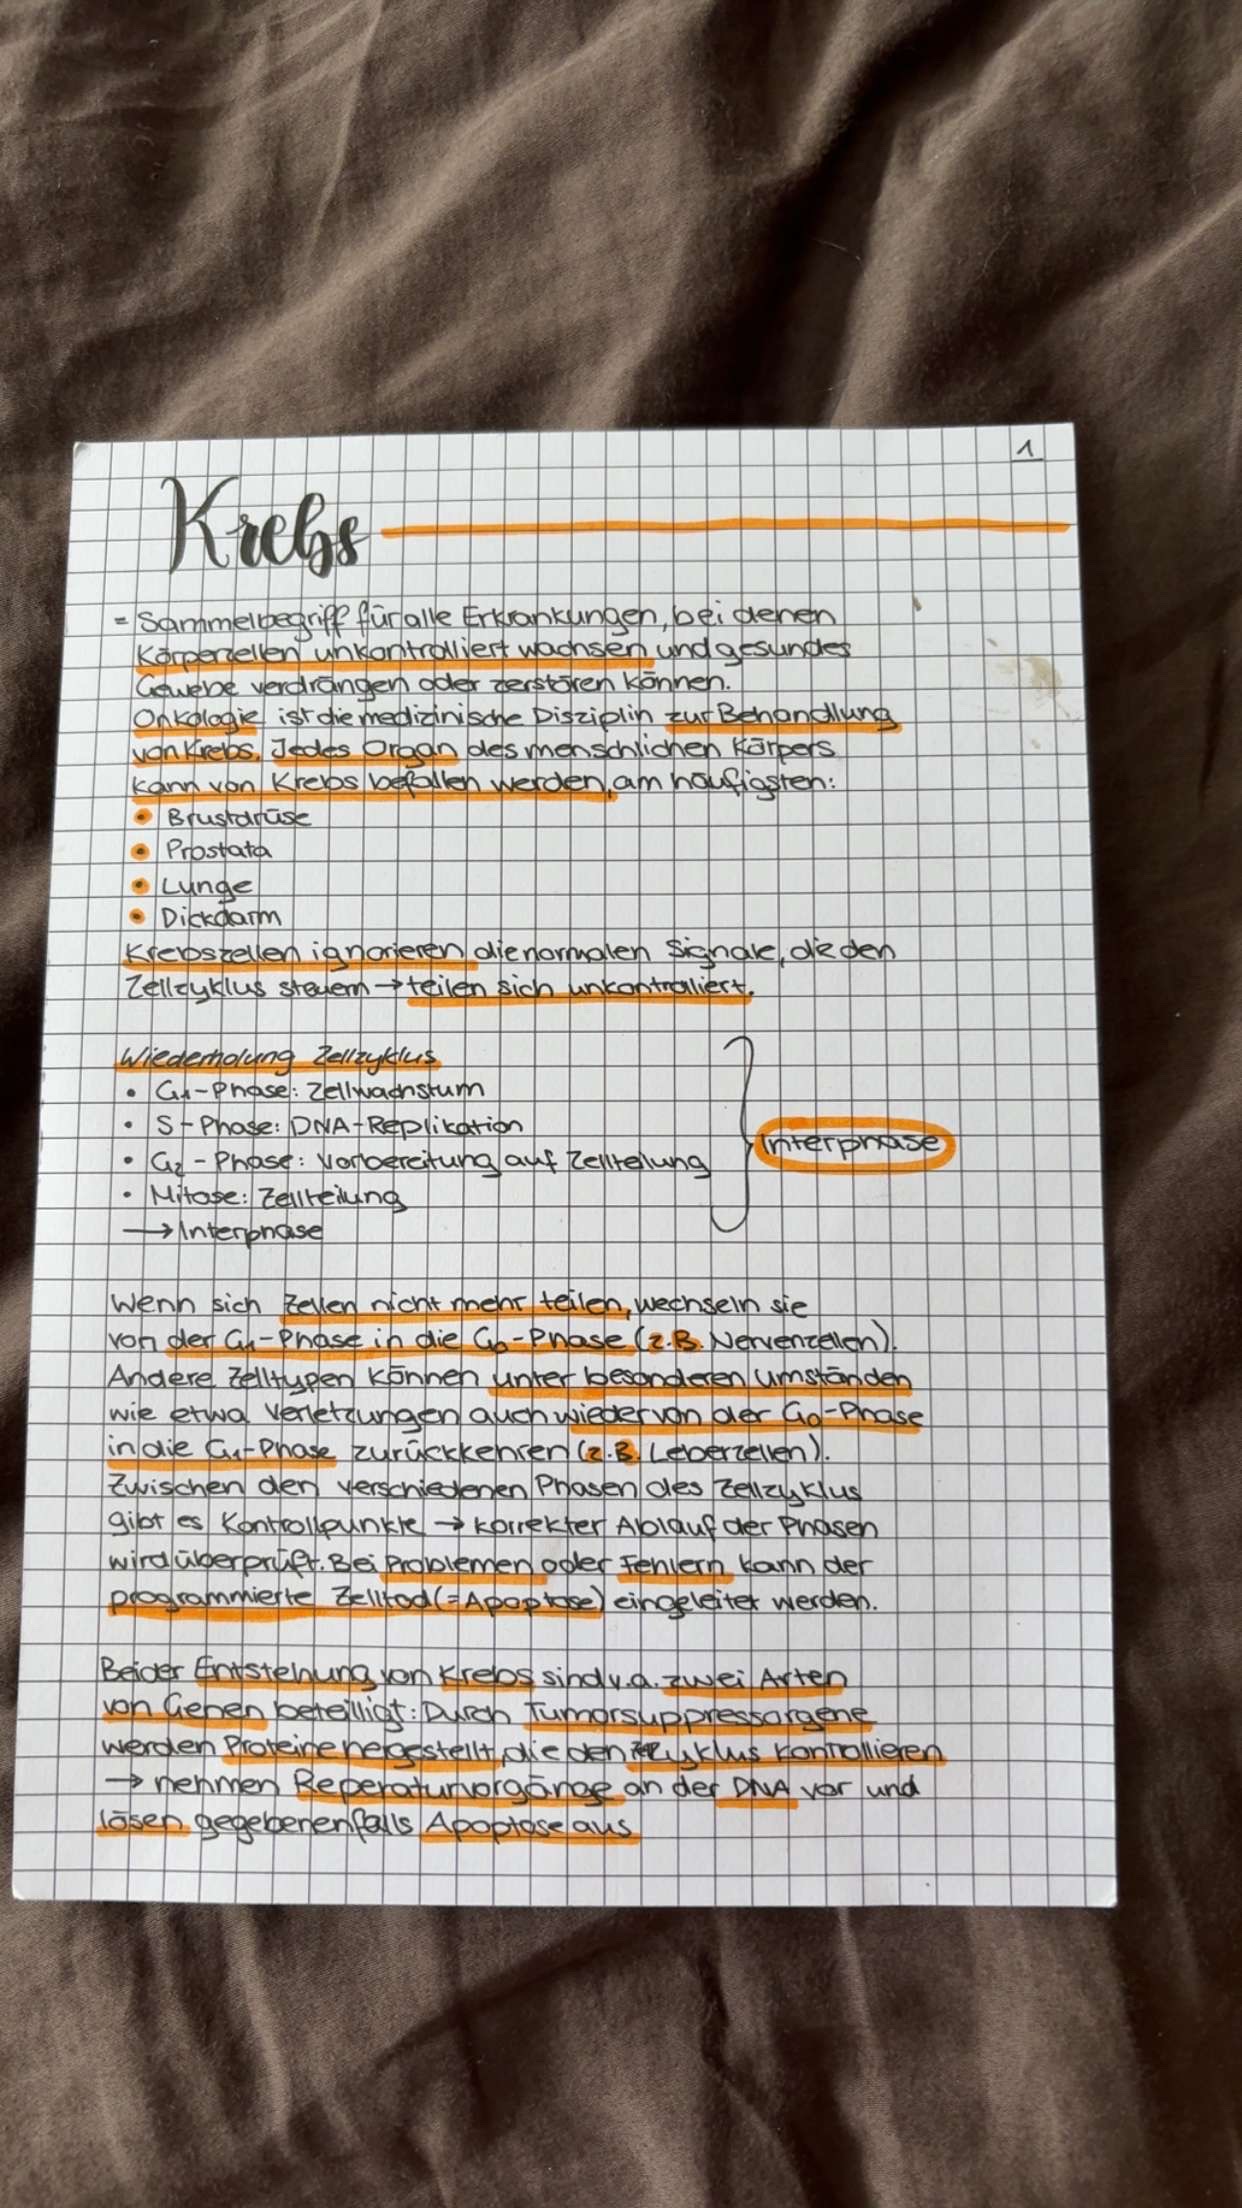 1
Krebs
= Sammelbegriff für alle Erkrankungen, bei denen
Körperzellen unkontrolliert wachsen und gesundes
Gewebe verdrängen oder zerstören können.
Onkologie ist die medizinische Disziplin zur Behandlung
von Krebs. Jedes Organ des menschlichen Körpers
kann von Krebs befallen werden, am häufigsten:
• Brustdrüse
• Prostata
• Lunge
• Dickdarm
Krebszellen ignorieren die normalen Signale, die den
Zellzyklus steuern → teilen sich unkontrolliert.
Wiederholung Zellzyklus
• G1-Phase: Zellwachstum
• S-Phase: DNA-Replikation
• G2-Phase: Vorbereitung auf Zellteilung
Interphase
• Mitose: Zellteilung
→ Interphase
Wenn sich Zellen nicht mehr teilen, wechseln sie
von der G1-Phase in die G0-Phase (z.B. Nervenzellen).
Andere Zelltypen können unter besonderen Umständen
wie etwa Verletzungen auch wieder von der G0-Phase
in die G1-Phase zurückkehren (z.B. Leberzellen).
Zwischen den verschiedenen Phasen des Zellzyklus
gibt es Kontrollpunkte → korrekter Ablauf der Phasen
wird überprüft. Bei Problemen oder Fehlern kann der
programmierte Zelltod (= Apoptose) eingeleitet werden.
Bei der Entstehung von Krebs sind v.a. zwei Arten
von Genen beteiligt: Durch Tumorsuppressorgene
werden Proteine hergestellt, die den Zellzyklus kontrollieren
→ nehmen Reperaturvorgänge an der DNA vor und
lösen gegebenenfalls Apoptose aus